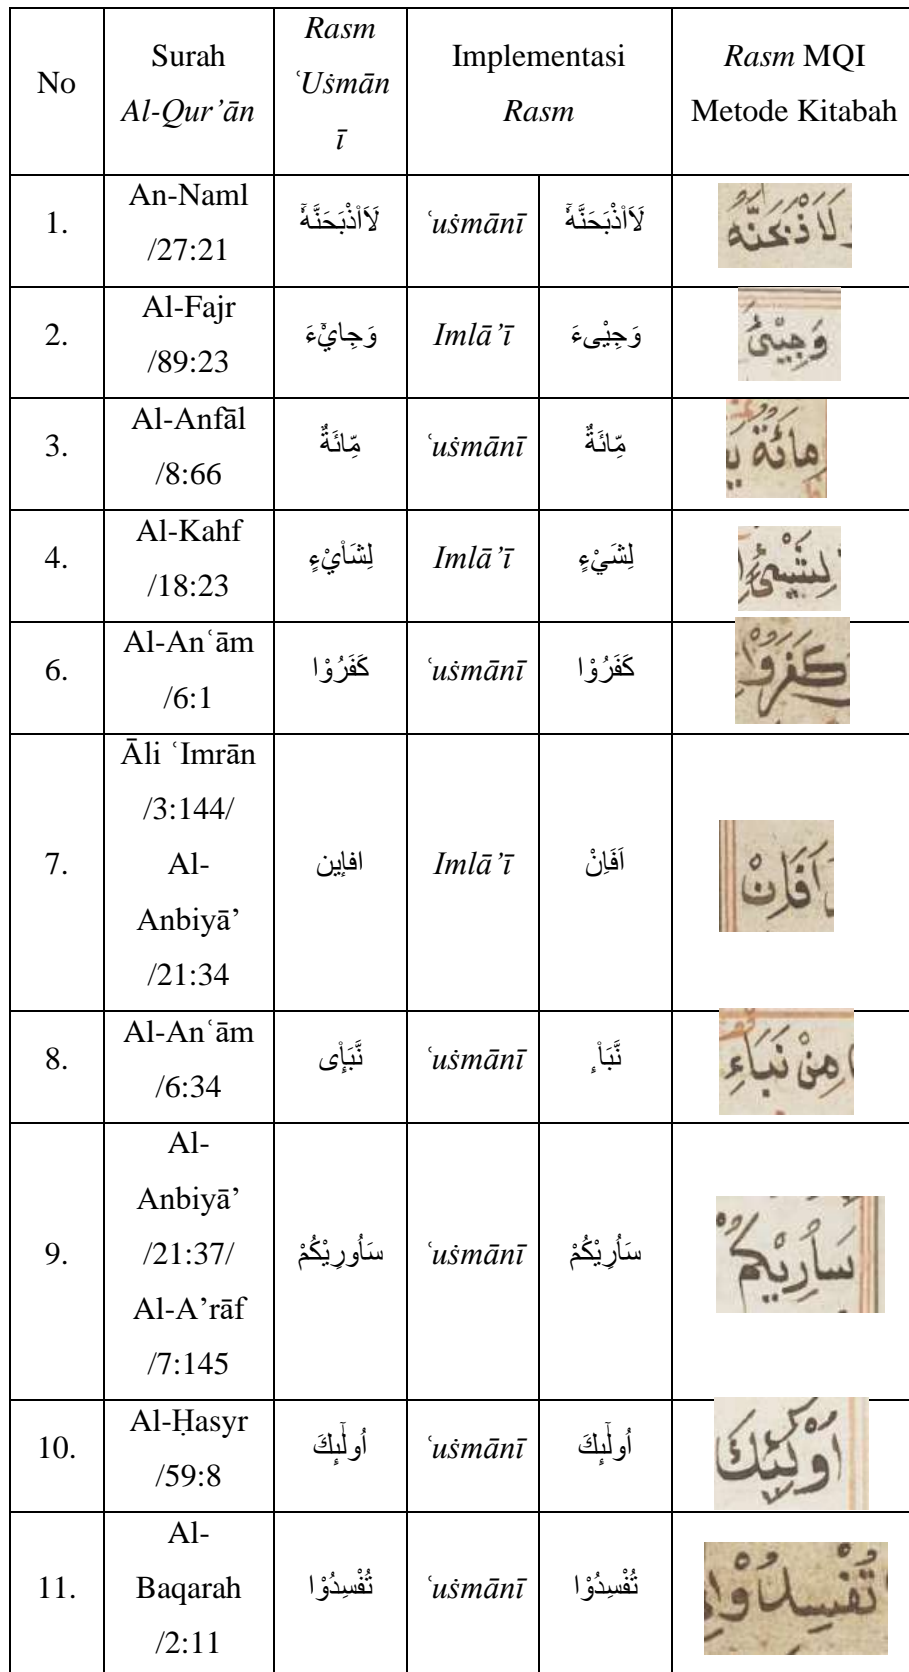 No | Surah Al-Qur’ān | Rasm ‘Uṡmānī | Implementasi Rasm | Rasm MQI Metode Kitabah
1. | An-Naml /27:21 | لَاَاْذْبَحَنَّهٗٓ | ‘uṡmānī | لَاَاْذْبَحَنَّهٗٓ | لَاَ ذْبَحَنَّهُ
2. | Al-Fajr /89:23 | وَجِايْٓءَ | Imlā’ī | وَجِيْىءَ | وَجِيْئَ
3. | Al-Anfāl /8:66 | مِّائَةٌ | ‘uṡmānī | مِّائَةٌ | مِائَةٌ
4. | Al-Kahf /18:23 | لِشَاْيْءٍ | Imlā’ī | لِشَيْءٍ | لِشَيْئٍ
6. | Al-An‘ām /6:1 | كَفَرُوْا | ‘uṡmānī | كَفَرُوْا | كَفَرُوْا
7. | Āli ‘Imrān /3:144/ Al-Anbiyā’ /21:34 | افإين | Imlā’ī | اَفَاِنْ | اَفَاِنْ
8. | Al-An‘ām /6:34 | نَّبَإِى | ‘uṡmānī | نَّبَإْ | مِنْ نَبَاءِ
9. | Al-Anbiyā’ /21:37/ Al-A’rāf /7:145 | سَاُورِيْكُمْ | ‘uṡmānī | سَاُرِيْكُمْ | سَاُرِيْكُمْ
10. | Al-Ḥasyr /59:8 | اُولٰۤىِٕكَ | ‘uṡmānī | اُولٰۤىِٕكَ | اُوْلٰئِكَ
11. | Al-Baqarah /2:11 | تُفْسِدُوْا | ‘uṡmānī | تُفْسِدُوْا | تُفْسِدُوْا